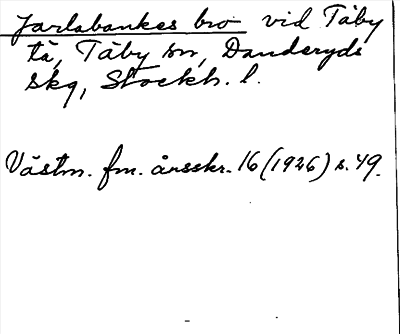 Jarlabankes bro vid Täby
tä, Täby sn, Danderyds
skg, Stockh. l.
Västm. fm. årsskr. 16 (1926) s. 49.